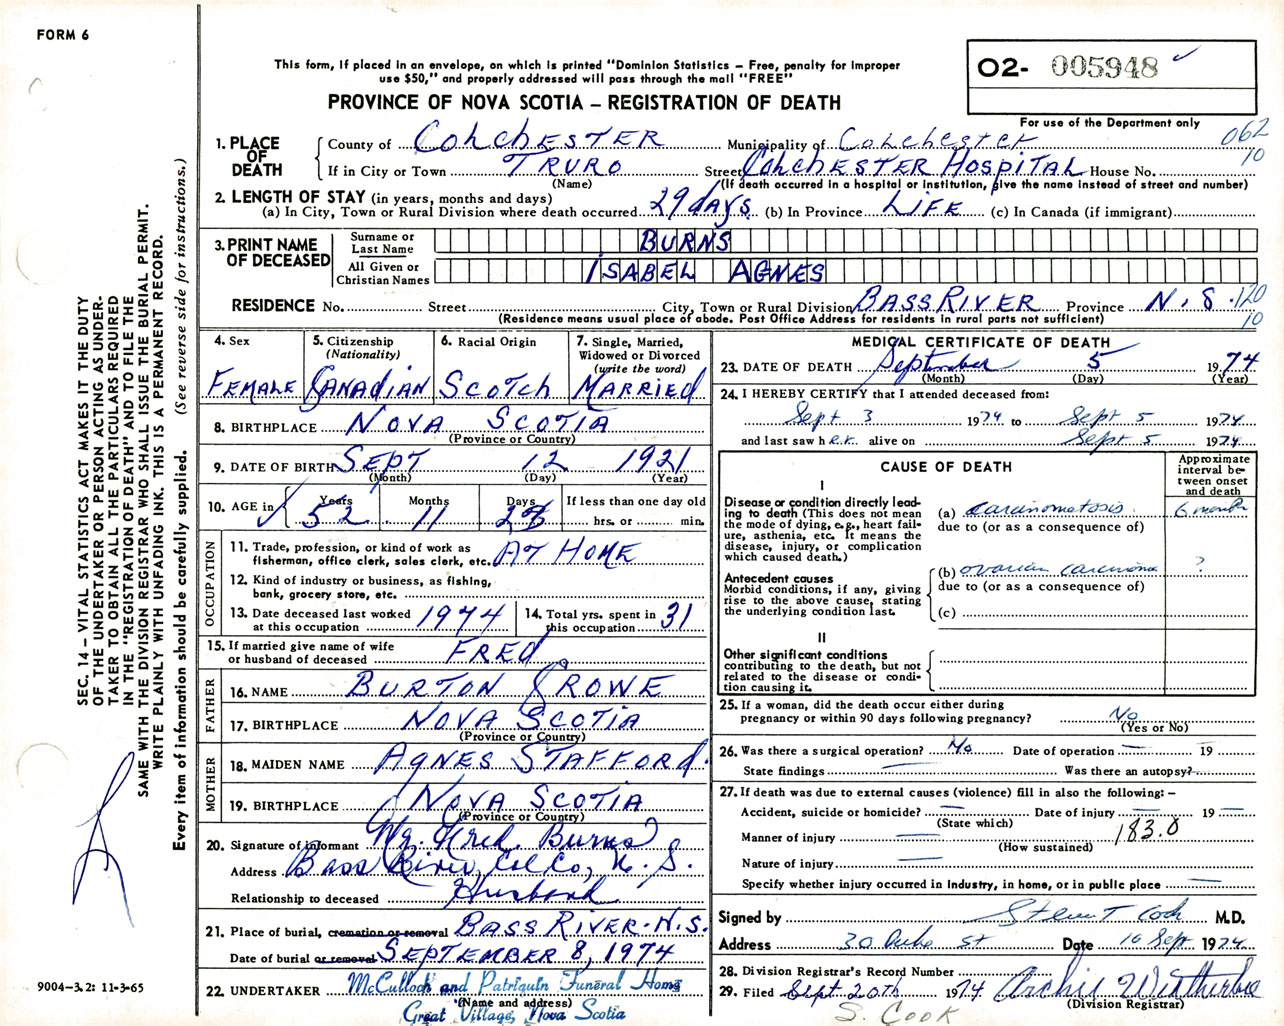 FORM 6
This form, if placed in an envelope, on which is printed "Dominion Statistics – Free, penalty for improper
use $50," and properly addressed will pass through the mail "FREE"
PROVINCE OF NOVA SCOTIA – REGISTRATION OF DEATH
O2- 005948
For use of the Department only
062
10
SEC. 14 – VITAL STATISTICS ACT MAKES IT THE DUTY
OF THE UNDERTAKER OR PERSON ACTING AS UNDER-
TAKER TO OBTAIN ALL THE PARTICULARS REQUIRED
IN THE "REGISTRATION OF DEATH" AND TO FILE THE
SAME WITH THE DIVISION REGISTRAR WHO SHALL ISSUE THE BURIAL PERMIT.
WRITE PLAINLY WITH UNFADING INK. THIS IS A PERMANENT RECORD.
Every item of information should be carefully supplied. (See reverse side for instructions.)
1. PLACE OF DEATH
County of COLCHESTER Municipality of COLCHESTER
If in City or Town TRURO Street COLCHESTER HOSPITAL House No.
(Name) (If death occurred in a hospital or institution, give the name instead of street and number)
2. LENGTH OF STAY (in years, months and days)
(a) In City, Town or Rural Division where death occurred 29 days. (b) In Province LIFE (c) In Canada (if immigrant)
3. PRINT NAME OF DECEASED
Surname or Last Name BURNS
All Given or Christian Names ISABEL AGNES
RESIDENCE No. Street City, Town or Rural Division BASS RIVER Province N.S. 120
10
(Residence means usual place of abode. Post Office Address for residents in rural parts not sufficient)
4. Sex FEMALE
5. Citizenship (Nationality) CANADIAN
6. Racial Origin SCOTCH
7. Single, Married, Widowed or Divorced (write the word) MARRIED
8. BIRTHPLACE NOVA SCOTIA
(Province or Country)
9. DATE OF BIRTH SEPT 12 1921
(Month) (Day) (Year)
10. AGE in Years 52 Months 11 Days If less than one day old hrs. or min.
OCCUPATION
11. Trade, profession, or kind of work as fisherman, office clerk, sales clerk, etc. AT HOME
12. Kind of industry or business, as fishing, bank, grocery store, etc.
13. Date deceased last worked at this occupation 1974
14. Total yrs. spent in this occupation 31
15. If married give name of wife or husband of deceased FRED
FATHER
16. NAME BURTON CROWE
17. BIRTHPLACE NOVA SCOTIA
(Province or Country)
MOTHER
18. MAIDEN NAME AGNES STAFFORD.
19. BIRTHPLACE NOVA SCOTIA
(Province or Country)
20. Signature of informant Mr. Fred. Burns
Address Bass River, Col Co, N.S.
Relationship to deceased Husband
21. Place of burial, cremation or removal BASS RIVER. N.S.
Date of burial or removal SEPTEMBER 8, 1974
22. UNDERTAKER McCulloch and Patriquin Funeral Home
(Name and address)
Great Village, Nova Scotia
9004-3.2: 11-3-65
MEDICAL CERTIFICATE OF DEATH
23. DATE OF DEATH September 5 1974
(Month) (Day) (Year)
24. I HEREBY CERTIFY that I attended deceased from:
Sept 3 1974 to Sept 5 1974
and last saw her. alive on Sept 5 1974
CAUSE OF DEATH
Approximate interval between onset and death
I
Disease or condition directly lead-
ing to death (This does not mean
the mode of dying, e.g., heart fail-
ure, asthenia, etc. It means the
disease, injury, or complication
which caused death.)
(a) carcinomatosis
due to (or as a consequence of)
Antecedent causes
Morbid conditions, if any, giving
rise to the above cause, stating
the underlying condition last.
(b) ovarian carcinoma ?
due to (or as a consequence of)
(c)
II
Other significant conditions
contributing to the death, but not
related to the disease or condi-
tion causing it.
25. If a woman, did the death occur either during
pregnancy or within 90 days following pregnancy? No
(Yes or No)
26. Was there a surgical operation? No Date of operation — 19 —
State findings — Was there an autopsy? —
27. If death was due to external causes (violence) fill in also the following: –
Accident, suicide or homicide? — Date of injury — 19 —
(State which) 183.0
Manner of injury —
(How sustained)
Nature of injury —
Specify whether injury occurred in industry, in home, or in public place —
Signed by Stewart Cook M.D.
Address 30 Duke St Date 16 Sept 1974
28. Division Registrar's Record Number
29. Filed Sept 20th 1974 Archie Wetherbie
(Division Registrar)
S. COOK